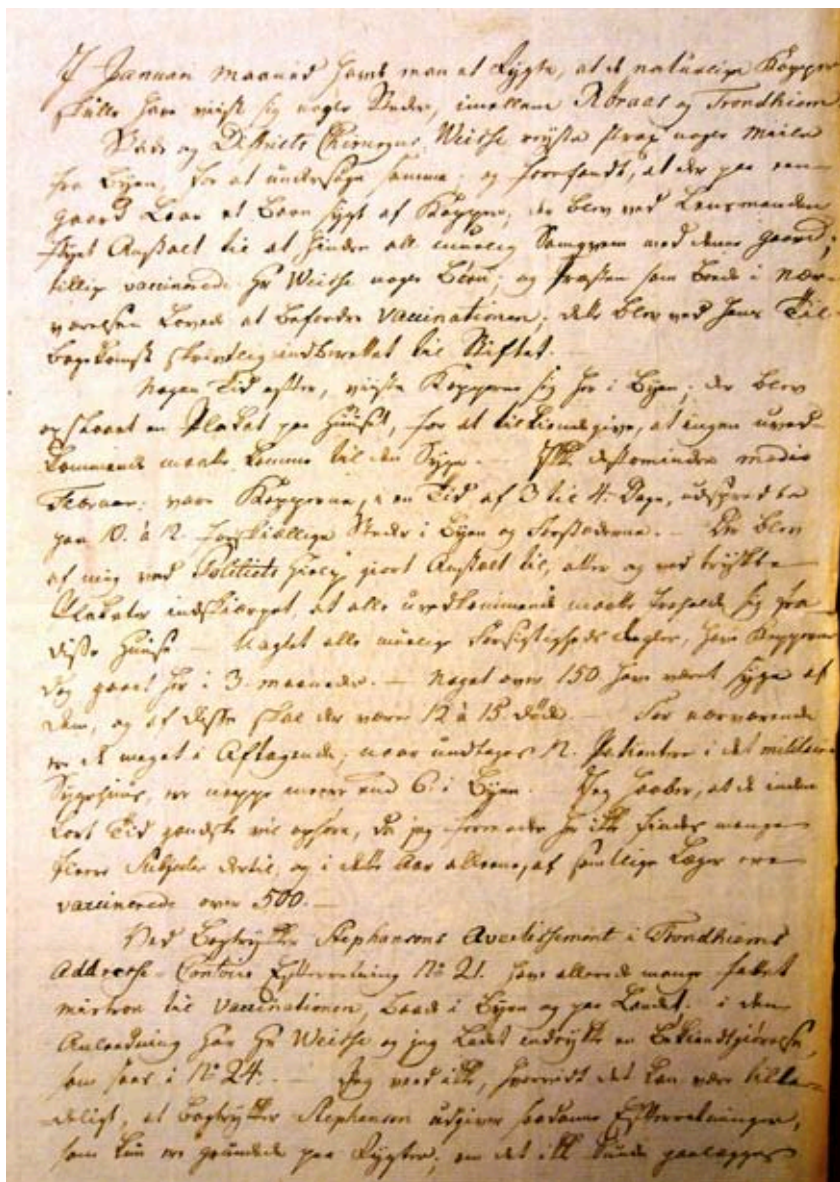 I Januari maaned hørte man et Rygte, at de naturlige Kopper
skulle have viist sig nogle Steder, imellem Röraas og Trondhiem
Stads og Districts Chirurgus Weisse reyste strax nogle Miile
fra Byen, for at undersøge samme; og forefandt, at der paa een
gaard Laae et Barn sygt af Kopper; der blev ved Lensmanden
føyet Anstalt til at hindre all muelig Samqvem med denne gaard;
tillige vaccinerede Hr Weisse nogle Børn; og Præsten som boede i nær-
værelsen Lovede at befordre Vaccinationen; dette blev ved hans Til-
bagekomst skriftlig indberettet til Stiftet.
Nogen Tid efter, viiste Kopperne sig her i Byen; der blev
opslaaet en Plakat paa Huuset, for at tilkiendegive, at ingen uved-
kommende maatte komme til den Syge. — Ikke destomindre medio
Februar: vare Kopperne, i en Tid af 3 til 4 Dage, udspredte
paa 10. à 12. forskiællige Steder i Byen og Forstæderne. — Der blev
af mig ved Politiets Hielp giort Anstalt til, atter og ved trykte
Plakater indskiærpet, at alle uvedkommende maatte troholde sig fra
disse Huuse — Uagtet alle muelige Forsigtigheds Regler, have Kopperne
dog gaaet her i 3. maaneder. — Noget over 150 have været syge af
dem, og af disse skal der være 12 à 15. døde. — For nærværende
er de meget i Aftagende; naar undtages 12. Patienter i det militaire
Sygehuus, er neppe meere end 6. i Byen. Jeg haaber, at de inden
kort Tid gandske vil ophøre, da jeg formoder her ikke findes mange
fleere Subjecter dertil, og i dette Aar alleene, af samtlige Læger ere
vaccinerede over 500. —
Ved Bogtrykker Stephansons Avertissement i Trondhiems
Addresse-Contoirs Efterretning No 21. have allerede mange fattet
mistroe til Vaccinationen, baade i Byen og paa Landet; i den
Anleedning har Hr Weisse og jeg Ladet indrykke en Bekiendtgiørelse,
som staar i No 24. — Jeg veed ikke, hvorvidt det kan være tilla-
deligt, at Bogtrykker Stephanson udgiver saadanne Efterretninger,
som kun ere grundede paa Rygter; om det ikke kunde paalægges